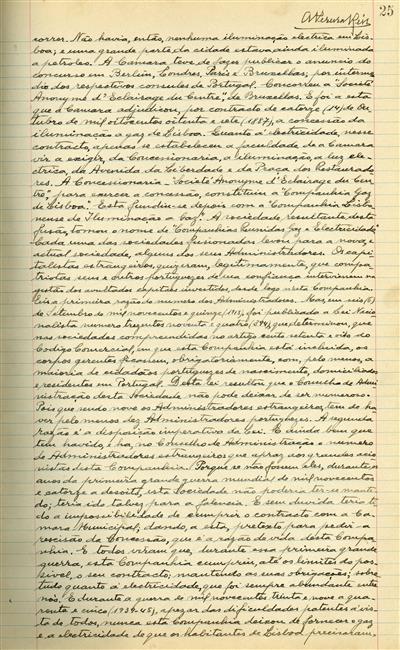 25
correr. Não havia, então, nenhuma iluminação electrica em Lis-
boa; e uma grande parte da cidade estava ainda iluminada
a petroleo. A Camara teve de fazer publicar o anuncio do
concurso em Berlim, Londres, Paris e Bruxellas; por interme-
dio dos respectivos consules de Portugal. Concorreu a "Société
Anonyme d'Éclairage du Centre", de Bruxellas. E foi a esta
que a Camara adjudicou, por contracto de catorze (14) de Ou-
tubro de mil oitocentos oitenta e sete (1887), a concessão da
iluminação a gaz de Lisboa. Quanto á electricidade, nesse
contracto, apenas se estabeleceu a faculdade de a Camara
vir a exigir, da Concessionaria, a iluminação, a luz ele-
ctrica, da Avenida da Liberdade e da Praça dos Restaurado-
res. A Concessionaria "Société Anonyme d'Éclairage du Cen-
tre", para exercer a concessão, constituiu a "Companhia Gaz
de Lisboa". Esta fundiu-se depois com a "Companhia Lisbo-
nense de Iluminação a Gaz". A sociedade resultante desta
fusão, tomou o nome de "Companhias Reunidas Gaz e Electricidade".
Cada uma das sociedades fusionadas levou para a nova, e
actual sociedade, alguns dos seus Administradores. Os capi-
talistas estrangeiros, quizeram, legitimamente, que compa-
triotas seus e outros portuguezes da sua confiança interviessem na
gestão dos avultados capitaes investidos, desde logo nesta Companhia.
Eis a primeira razão do numero dos Administradores. Mas, em seis (6)
de Setembro de mil novecentos e quinze (1915), foi publicada a Lei Nacio-
nalista numero trezentos noventa e quatro (394), que determinou, que
nas sociedades comprehendidas no artigo cento setenta e oito do
Codigo Comercial, em que esta Companhia está incluida, os
corpos gerentes ficassem, obrigatoriamente, com, pelo menos, a
maioria de cidadãos portuguezes de nascimento, domiciliados
e residentes em Portugal. Desta lei resultou que o Conselho de Admi-
nistração desta Sociedade não pode deixar de ser numeroso.
Pois que sendo nove os Administradores estrangeiros, tem de ha-
ver pelo menos dez Administradores portuguezes. A segunda
razão é a disposição imperativa da Lei. E ainda bem que
tem havido, e ha, no Conselho de Administração o numero
de Administradores estrangeiros que apraz aos grandes acio-
nistas desta Companhia. Porque se não fossem eles, durante os
anos da primeira grande guerra mundial de mil novecentos
e catorze a dezoito, esta Sociedade não poderia ter-se manti-
do; teria ido talvez para a falencia. E sem duvida teria ti-
do a impossibilidade de cumprir o contracto com a Ca-
mara Municipal, dando, a esta, pretexto para pedir a
rescisão da Concessão, que é a razão de vida desta Compa-
nhia. E todos viram que, durante essa primeira grande
guerra, esta Companhia cumpriu, até os limites do pos-
sivel, o seu contracto, mantendo as suas obrigações, sobre-
tudo quanto á electricidade, que foi sempre abundante entre
nós. E durante a guerra de mil novecentos trinta e nove a qua-
renta e cinco (1939-45), apezar das dificuldades patentes á vis-
ta de todos, nunca esta Companhia deixou de fornecer o gaz
e a electricidade de que os habitantes de Lisboa precisaram,